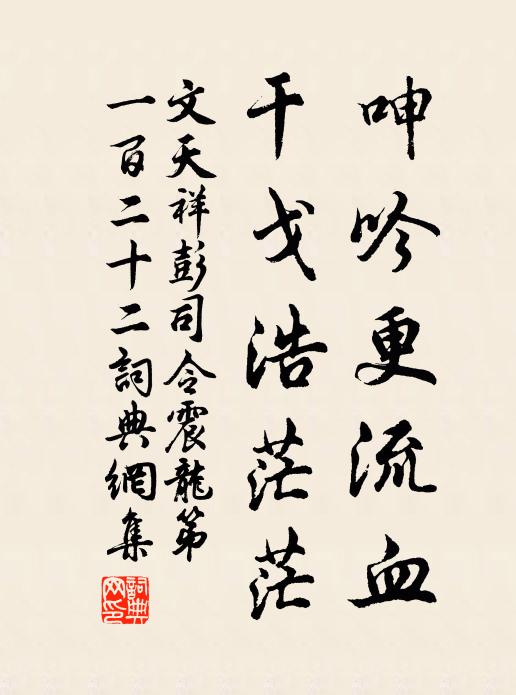 呻吟更流血
干戈浩茫茫
文天祥彭司令震龍第
一百二十二詞典網集
詞典網印